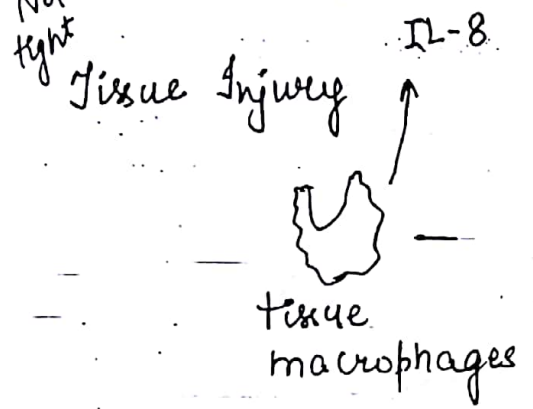 tight
IL-8
Tissue Injury
tissue
macrophages